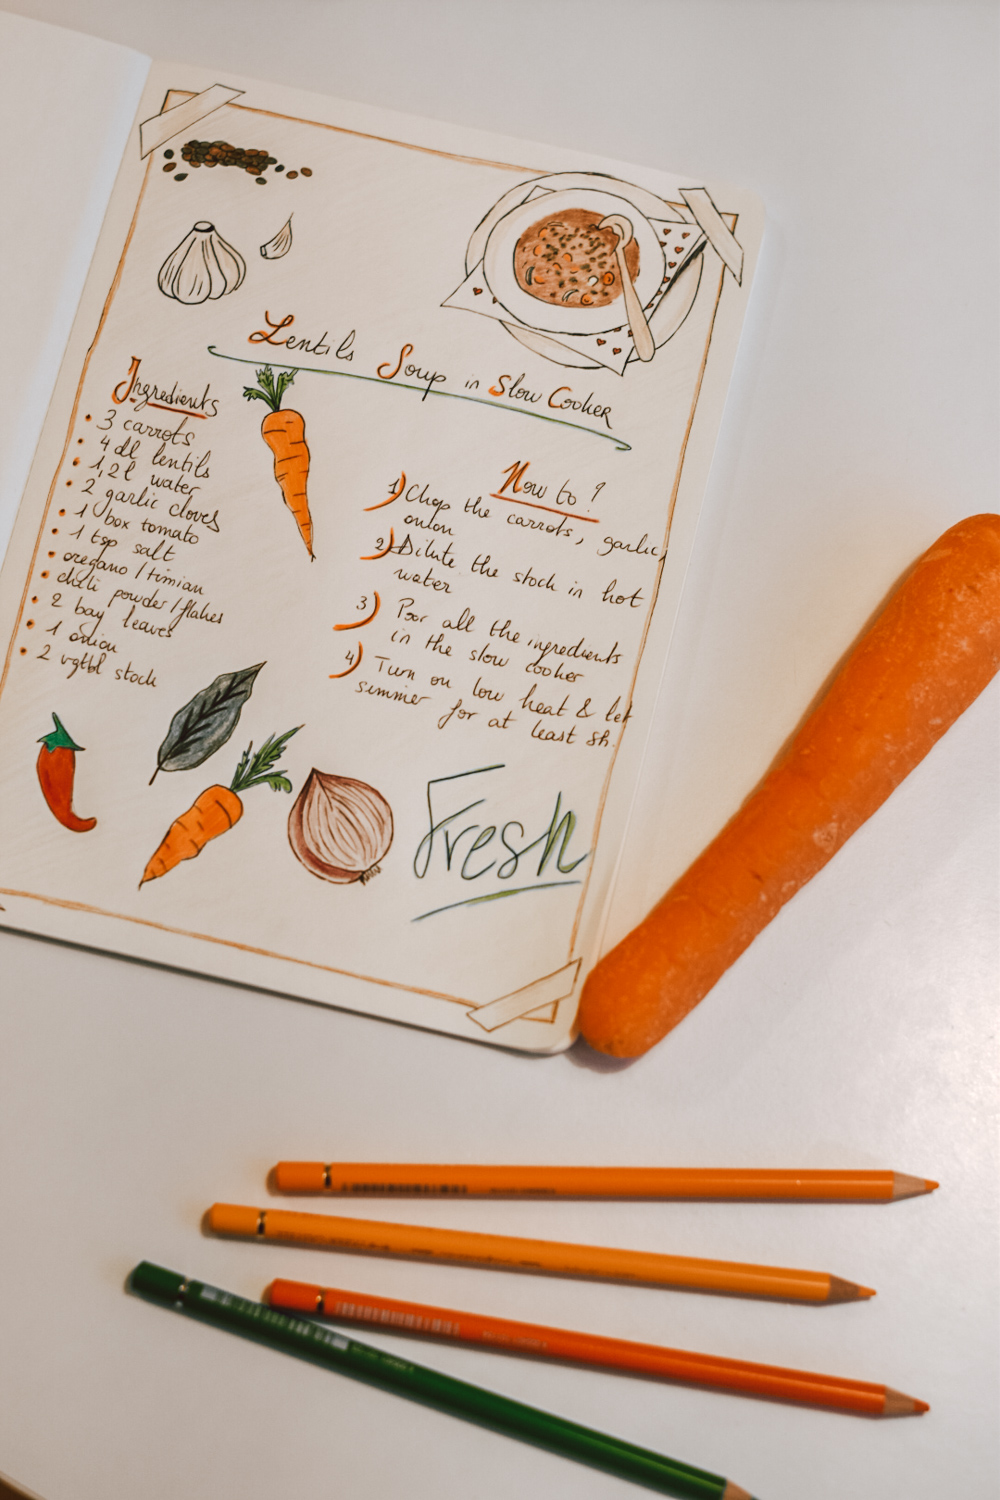 Lentils Soup in Slow Cooker
Ingredients
• 3 carrots
• 4 dl lentils
• 1,2 l water
• 2 garlic cloves
• 1 box tomato
• 1 tsp salt
• oregano / timian
• chili powder / flakes
• 2 bay leaves
• 1 onion
• 2 vgtbl stock
How to ?
1) Chop the carrots, garlic,
onion
2) Dilute the stock in hot
water
3) Poor all the ingredients
in the slow cooker
4) Turn on low heat & let
simmer for at least 8h.
Fresh